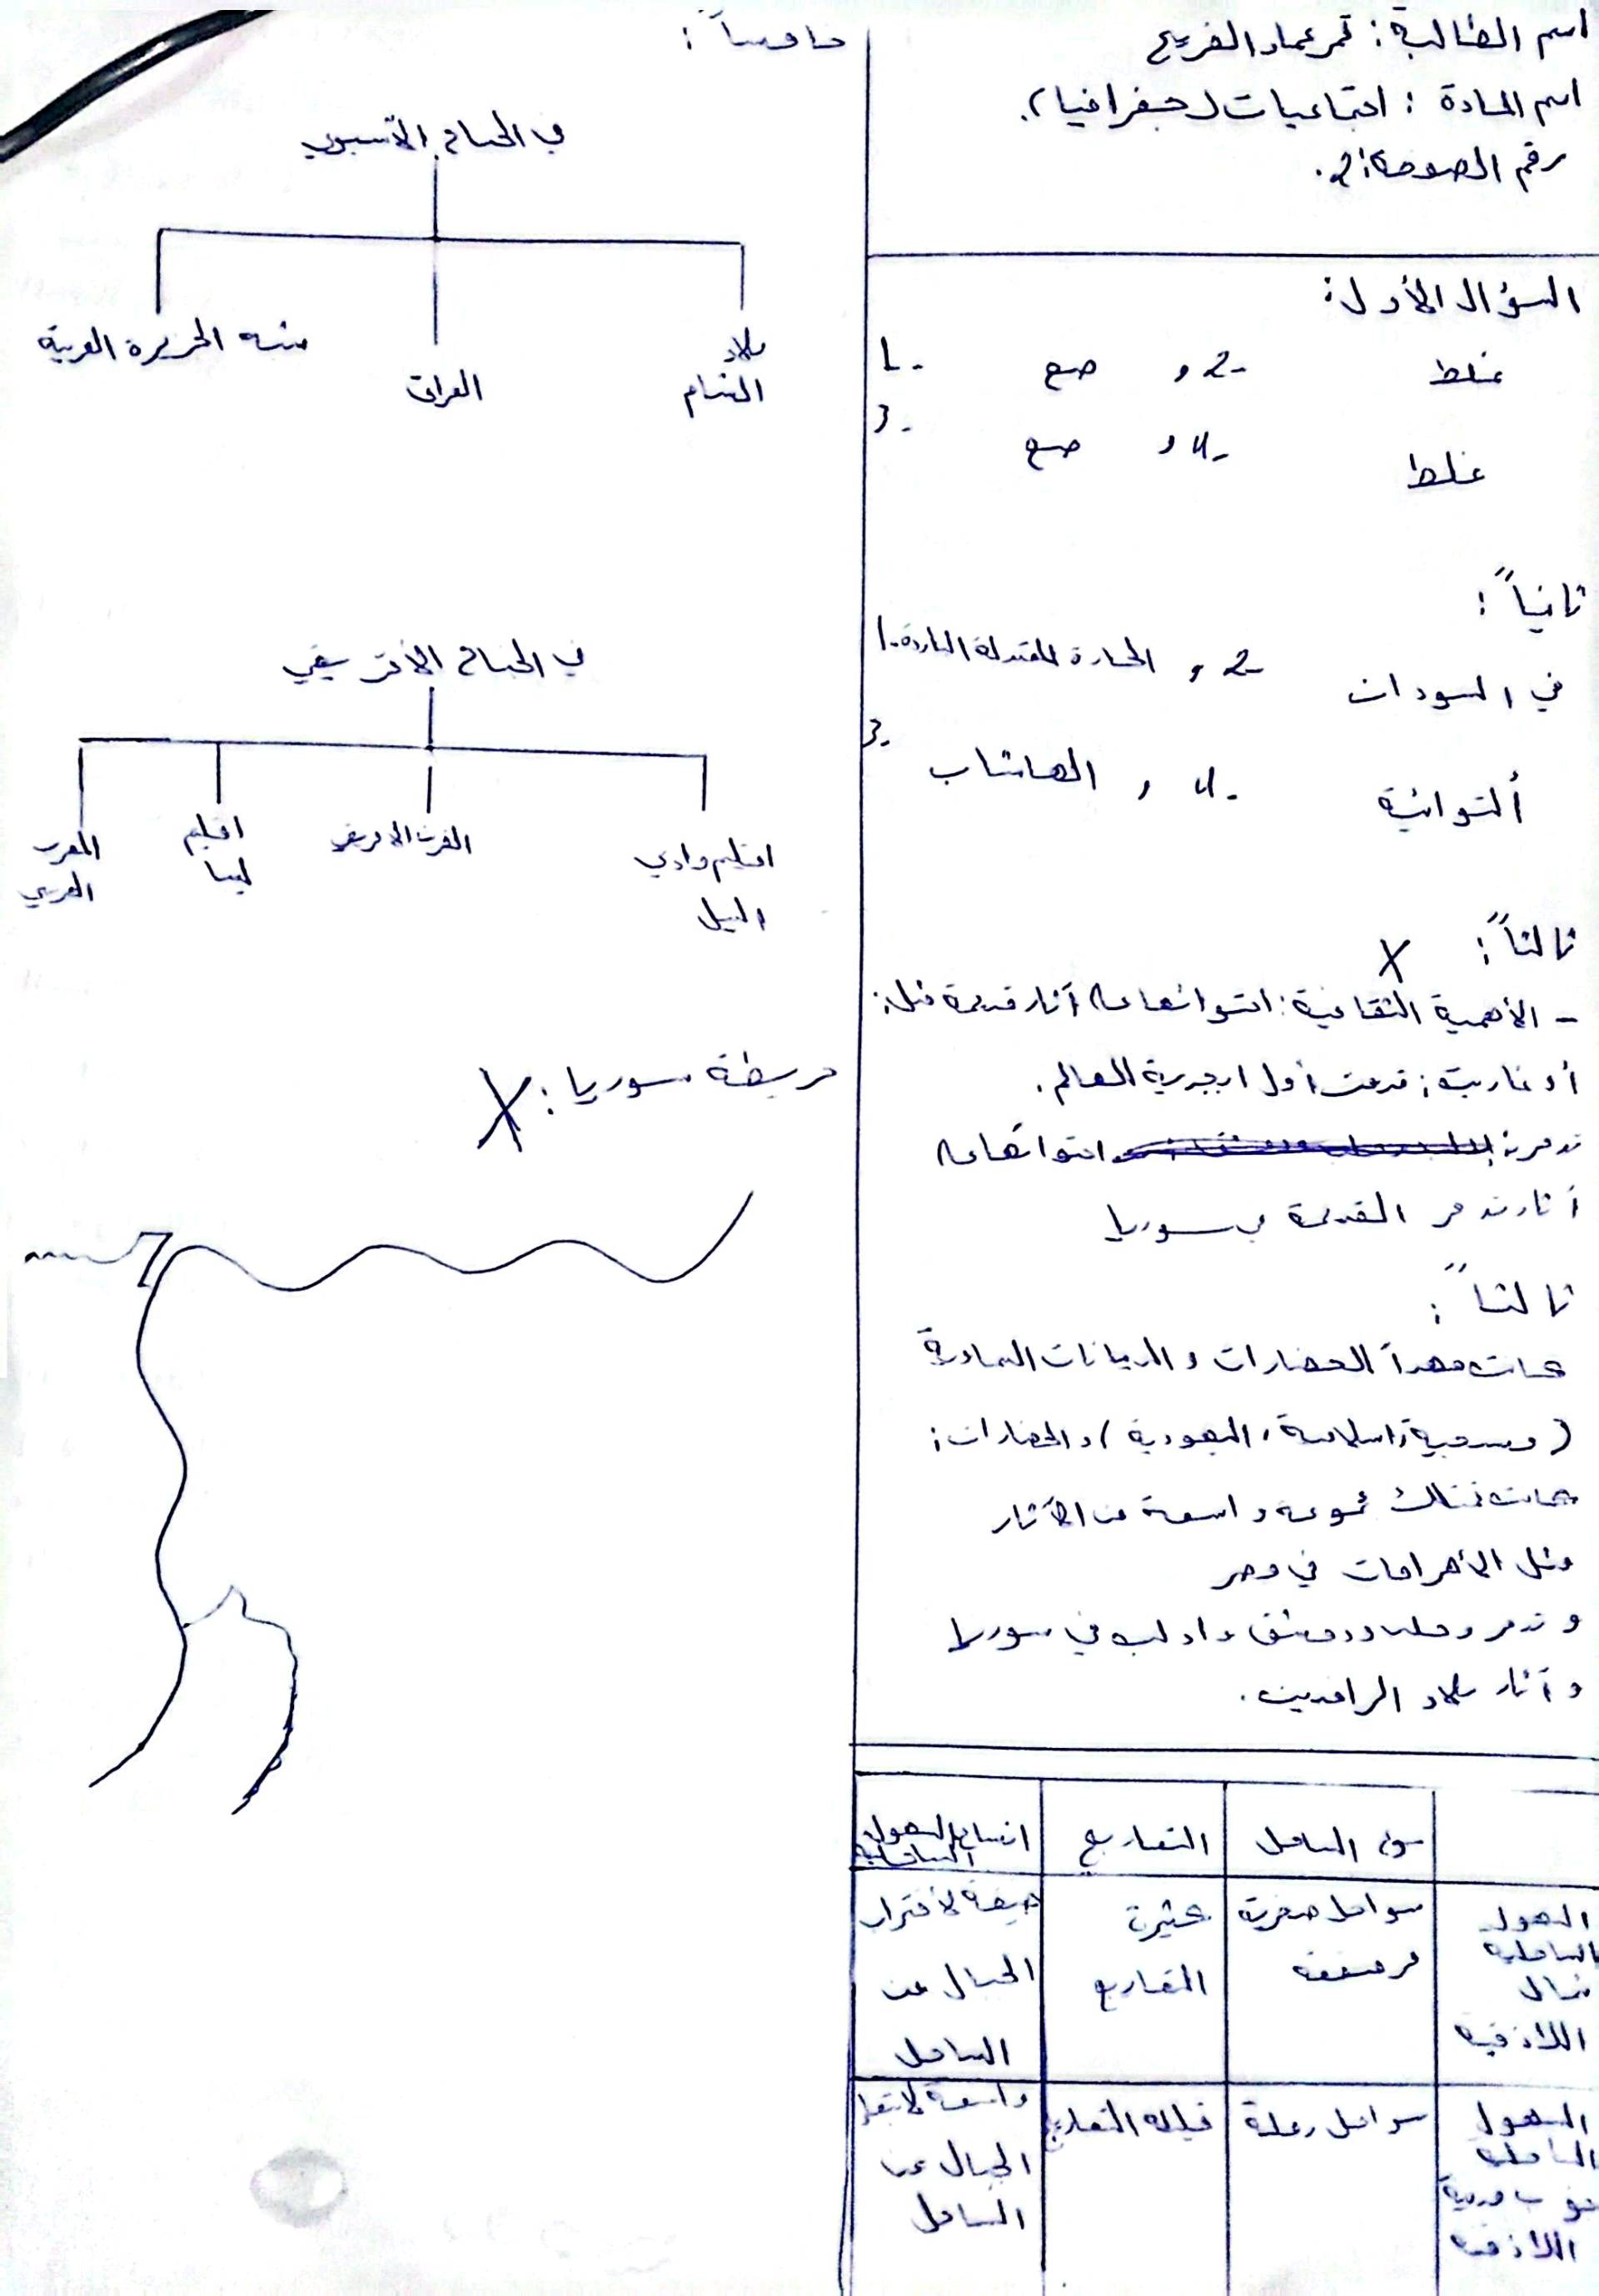 اسم الطالبة: قمر عماد الفريج
اسم المادة: اجتماعيات (جغرافيا).
رقم الصفحة: 2.
السؤال الأول:
1- غلط 2- صح
3- غلط 4- صح
ثانياً:
1- في السودان 2- الحارة المعتدلة الباردة
3- ألتوائية 4- الهاشاب
ثالثاً: X
- الأهمية الثقافية: احتوائها على آثار قديمة مثل:
أوغاريت: قدمت أول ابجدية العالم.
تدمر: احتوائها على
آثار تدمر القديمة في سوريا
ثالثاً:
كانت مهداً الحضارات والديانات السماوية
(مسيحية، اسلامية، اليهودية) والحضارات:
كانت تمتلك مجموعة واسعة من الآثار
مثل الأهرامات في مصر
وتدمر وحلب ودمشق وادلب في سوريا
وآثار بلاد الرافدين.
نوع الساحل التعاريج اتساع السهول الساحلية
السهول الساحلية شمال اللاذقية سواحل صخرية مرتفعة كثيرة التعاريج ضيقة لاقتراب الجبال من الساحل
السهول الساحلية جنوب مدينة اللاذقية سواحل رملية قليلة التعاريج واسعة لابتعاد الجبال عن الساحل
خامساً:
في الجناح الآسيوي
بلاد الشام العراق شبه الجزيرة العربية
في الجناح الأفريقي
اقليم وادي النيل القرن الافريقي اقليم ليبيا المغرب العربي
خريطة سوريا: X